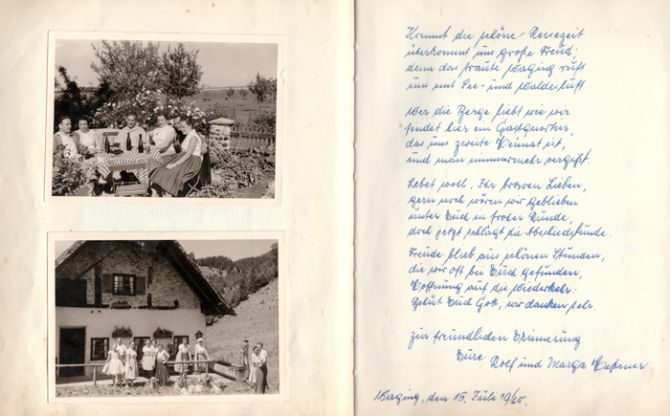 Kommt die schöne Reisezeit
überkommt uns große Freud:
denn das traute Waging ruft
uns mit See- und Waldesluft
Wer die Berge liebt wie wir
findet hier ein Gastquartier,
das uns zweite Heimat ist,
und man nimmermehr vergißt.
Lebet wohl, Ihr braven Lieben,
gern noch wären wir geblieben
unter Euch in froher Runde,
doch jetzt schlägt die Abschiedsstunde.
Freude blieb aus schönen Stunden,
die wir oft bei Euch gefunden,
Hoffnung auf die Wiederkehr:
Behüt Euch Gott, wir danken sehr
zur freundlichen Erinnerung
Eure Rolf und Marga
Waging, den 15. Juli 1960.